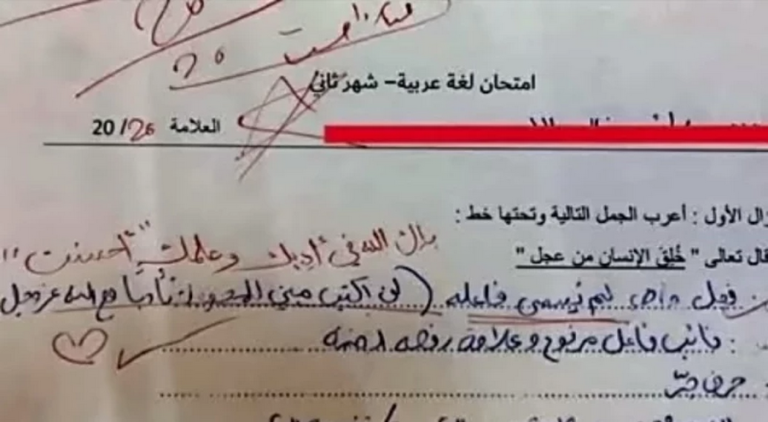 أحسنت
20
امتحان لغة عربية- شهر ثاني
العلامة 20/20
ؤال الأول : أعرب الجمل التالية وتحتها خط :
بارك الله في أدبك وعلمك "أحسنت"
قال تعالى " خُلِقَ الإنسان من عجل "
: فعل ماضٍ لم يُسمى فاعله (لن أكتب مبني للمجهول تأدباً مع الله عز وجل
: نائب فاعل مرفوع وعلامة رفعه الضمة
: حرف جرّ